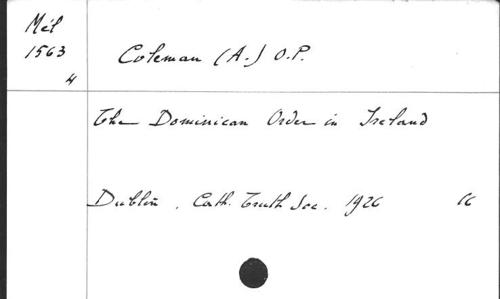 Mél
1563
4
Coleman (A.) O.P.
The Dominican Order in Ireland
Dublin, Cath. Truth Soc. 1926 16